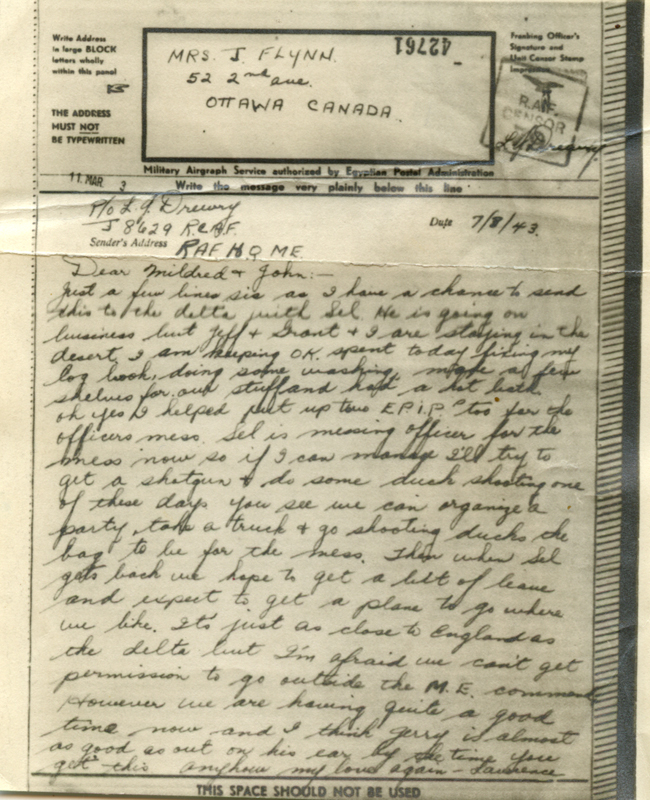 Write Address
in large BLOCK
letters wholly
within this panel
THE ADDRESS
MUST NOT
BE TYPEWRITTEN
MRS. J. FLYNN.
52 2nd ave.
OTTAWA CANADA.
42761
Franking Officer's
Signature and
Unit Censor Stamp
Impression
R.A.F.
CENSOR
L.J. Drewry.
Military Airgraph Service authorized by Egyptian Postal Administration
11 MAR 3
Write the message very plainly below this line
P/O L. J. Drewry
J 8629 R.C.A.F.
Sender's Address RAF H Q M E.
Date 7/3/43.
Dear Mildred & John:—
Just a few lines sis as I have a chance to send
this to the delta with Sel. He is going on
business but Jeff & Grant & I are staying in the
desert. I am keeping O.K. spent today fixing my
log book, doing some washing, made a few
shelves for our stuff and had a hot bath.
oh yes I helped put up two E.P.I.P.s too for the
officers mess. Sel is messing officer for the
mess now so if I can manage I'll try to
get a shotgun & do some duck shooting one
of these days you see we can organize a
party, take a truck & go shooting ducks the
bag to be for the mess. Then when Sel
gets back we hope to get a bit of leave
and expect to get a plane to go where
we like. It's just as close to England as
the delta but I'm afraid we can't get
permission to go outside the M.E. command
However we are having quite a good
time now and I think Jerry is almost
as good as out on his ear by the time you
get this anyhow my love again — Lawrence
THIS SPACE SHOULD NOT BE USED